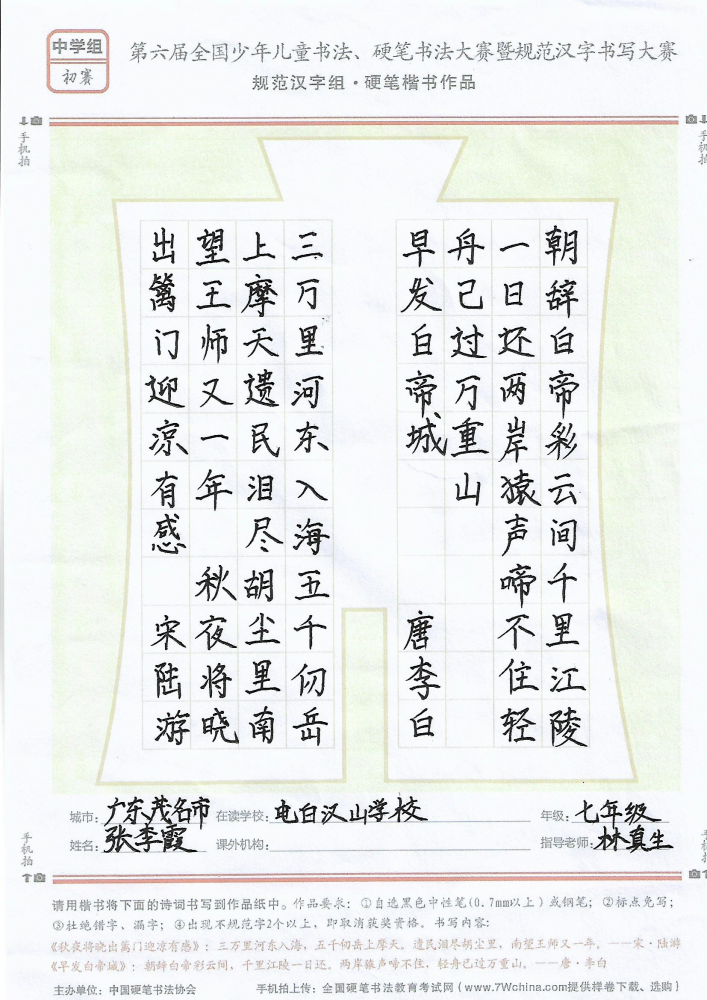 中学组
初赛
第六届全国少年儿童书法、硬笔书法大赛暨规范汉字书写大赛
规范汉字组·硬笔楷书作品
手机拍
手机拍
朝辞白帝彩云间千里江陵
一日还两岸猿声啼不住轻
舟已过万重山
早发白帝城 唐李白
三万里河东入海五千仞岳
上摩天遗民泪尽胡尘里南
望王师又一年 秋夜将晓
出篱门迎凉有感 宋陆游
城市：广东茂名市 在读学校：电白汉山学校 年级：七年级
姓名：张李霞 课外机构： 指导老师：林真生
手机拍
手机拍
请用楷书将下面的诗词书写到作品纸中。作品要求：①自选黑色中性笔(0.7mm以上)或钢笔；②标点免写；
③杜绝错字、漏字；④出现不规范字2个以上，即取消获奖资格。书写内容：
《秋夜将晓出篱门迎凉有感》：三万里河东入海，五千仞岳上摩天。遗民泪尽胡尘里，南望王师又一年。——宋·陆游
《早发白帝城》：朝辞白帝彩云间，千里江陵一日还。两岸猿声啼不住，轻舟已过万重山。——唐·李白
主办单位：中国硬笔书法协会 手机拍上传：全国硬笔书法教育考试网（www.7Wchina.com提供样卷下载、选购）